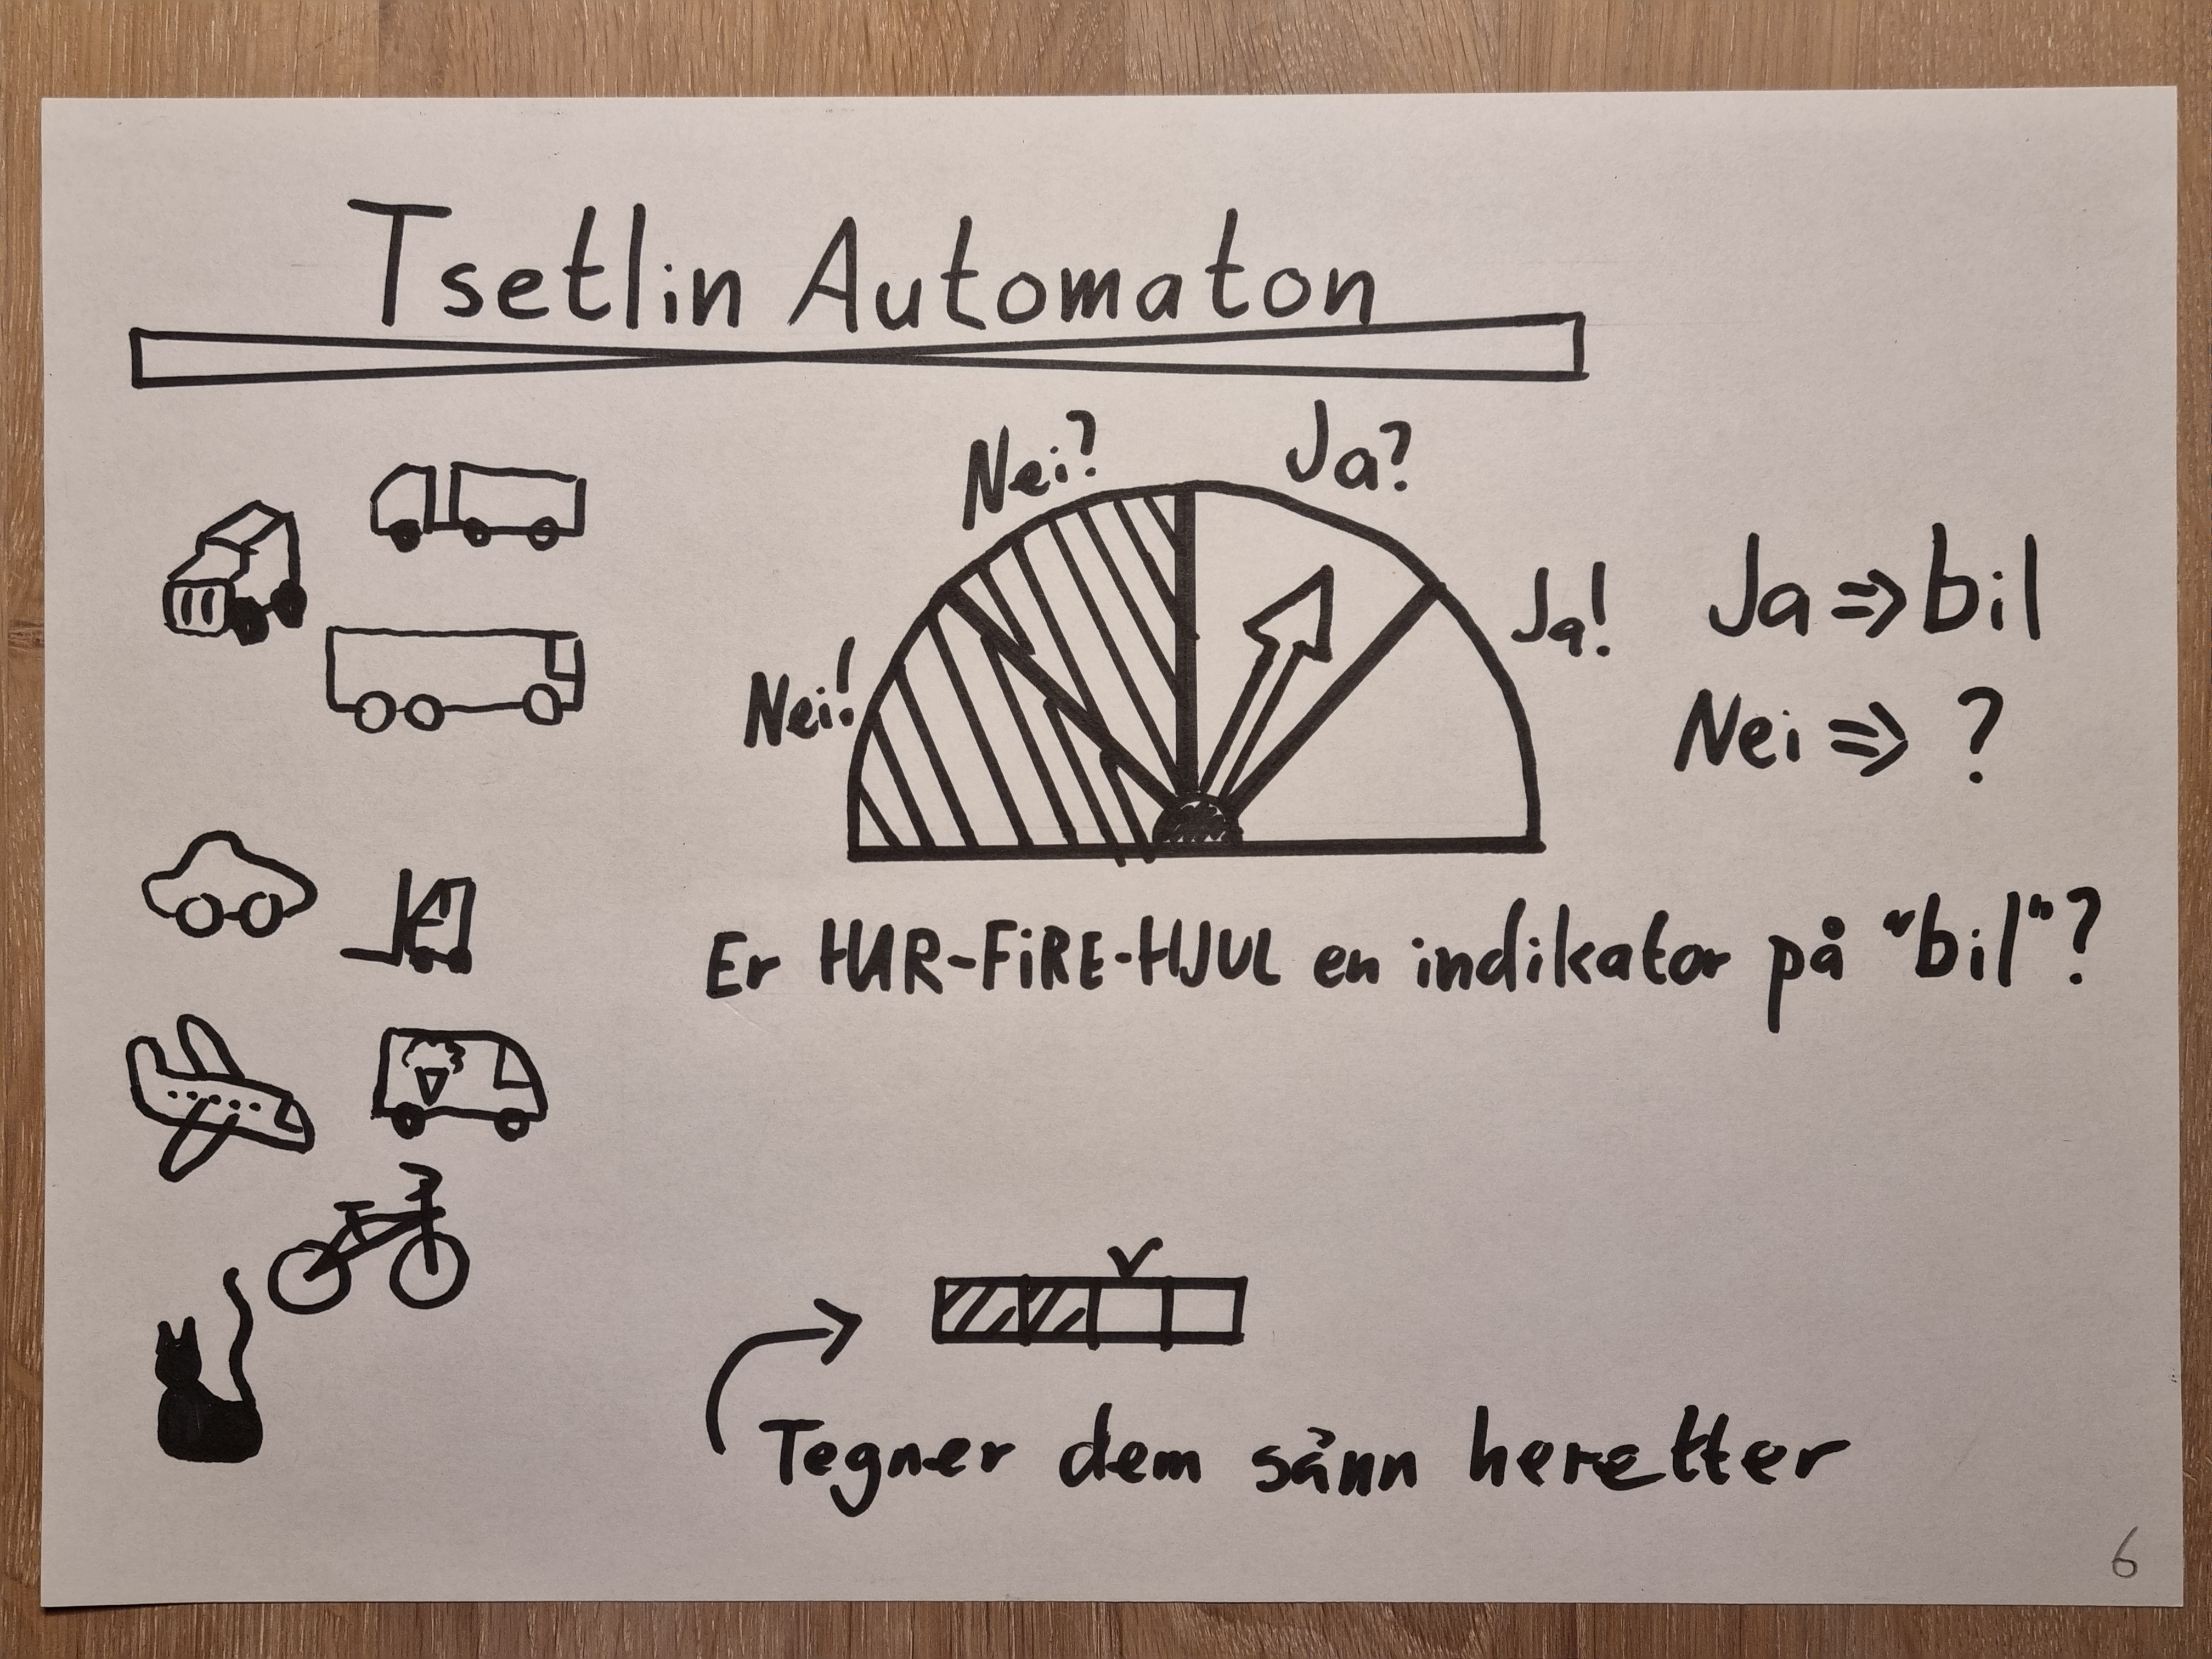 Tsetlin Automaton
Nei! Nei? Ja? Ja!
Ja => bil
Nei => ?
Er HAR-FiRE-HJUL en indikator på "bil"?
Tegner dem sånn heretter
6